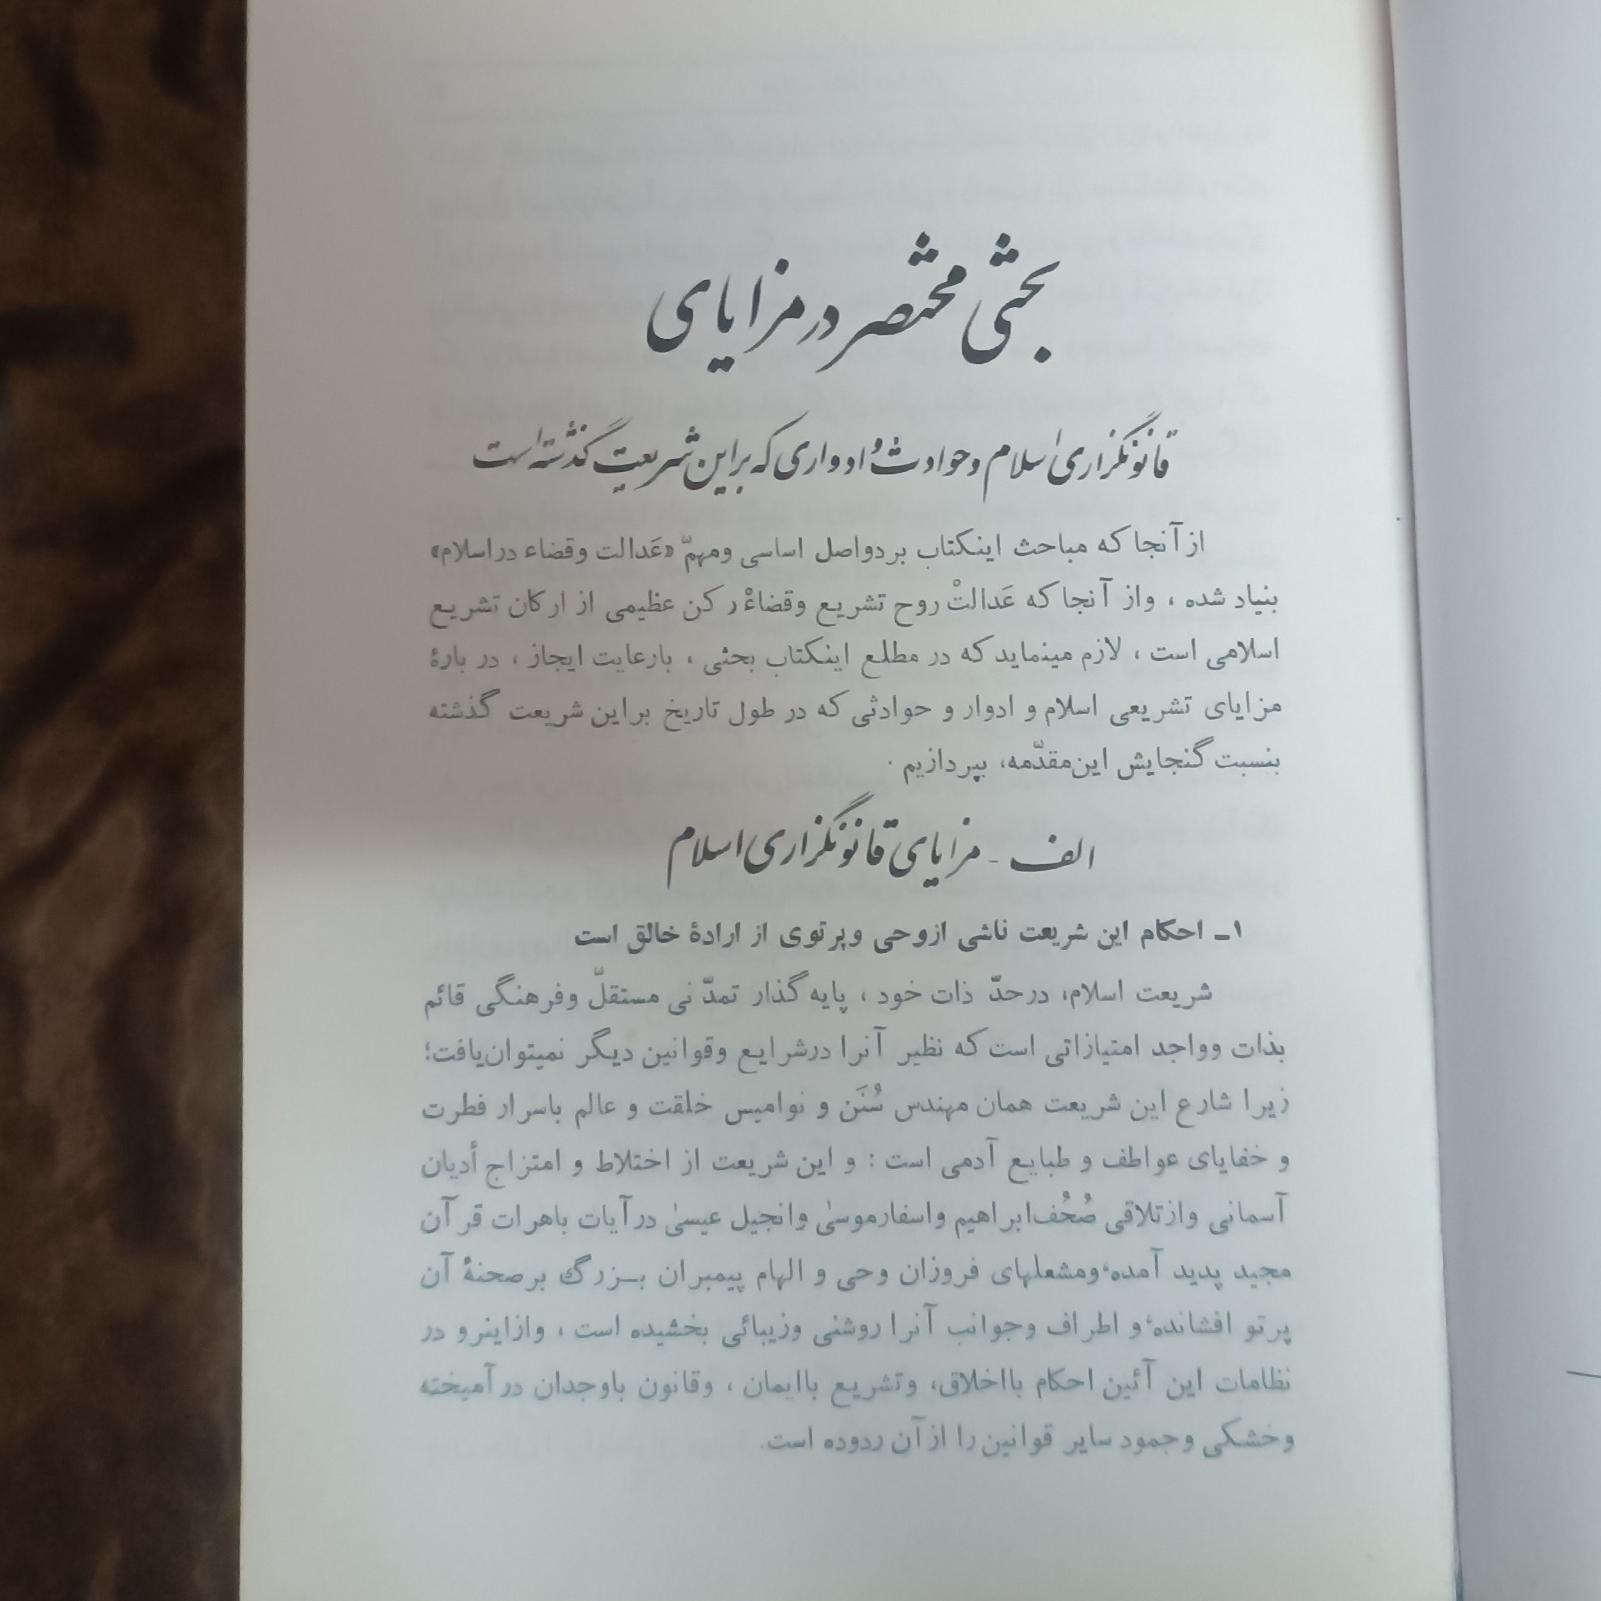 بحثی مختصر در مزایای
قانونگزاری اسلام و حوادث و ادواری که بر این شریعت گذشته است
از آنجا که مباحث اینکتاب بر دواصل اساسی ومهمّ «عَدالت وقضاء دراسلام»
بنیاد شده ، واز آنجا که عَدالتْ روح تشریع وقضاءْ رکن عظیمی از ارکان تشریع
اسلامی است ، لازم مینماید که در مطلع اینکتاب بحثی ، بارعایت ایجاز ، در بارهٔ
مزایای تشریعی اسلام و ادوار و حوادثی که در طول تاریخ براین شریعت گذشته
بنسبت گنجایش این‌مقدّمه، بپردازیم .
الف - مزایای قانونگزاری اسلام
۱ـ احکام این شریعت ناشی ازوحی وپرتوی از ارادهٔ خالق است
شریعت اسلام، درحدّ ذات خود ، پایه گذار تمدّنی مستقلّ وفرهنگی قائم
بذات وواجد امتیازاتی است که نظیر آنرا درشرایع وقوانین دیگر نمیتوان‌یافت؛
زیرا شارع این شریعت همان مهندس سُنَن و نوامیس خلقت و عالم باسرار فطرت
و خفایای عواطف و طبایع آدمی است : و این شریعت از اختلاط و امتزاج أدیان
آسمانی وازتلاقی صُحُف‌ابراهیم واسفارموسیٰ وانجیل عیسیٰ درآیات باهرات قرآن
مجید پدید آمده،ومشعلهای فروزان وحی و الهام پیمبران بـزرگ برصحنهٔ آن
پرتو افشانده،و اطراف وجوانب آنرا روشنی وزیبائی بخشیده است ، وازاینرو در
نظامات این آئین احکام بااخلاق، وتشریع باایمان ، وقانون باوجدان درآمیخته
وخشکی وجمود سایر قوانین را ازآن زدوده است.